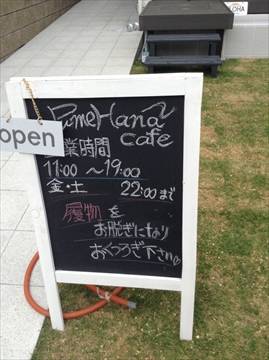 PimeHana
cafe
open
営業時間
11:00 ～19:00
金・土 22:00まで
履物を
お脱ぎになり
おくつろぎ下さい♡
ALOHA